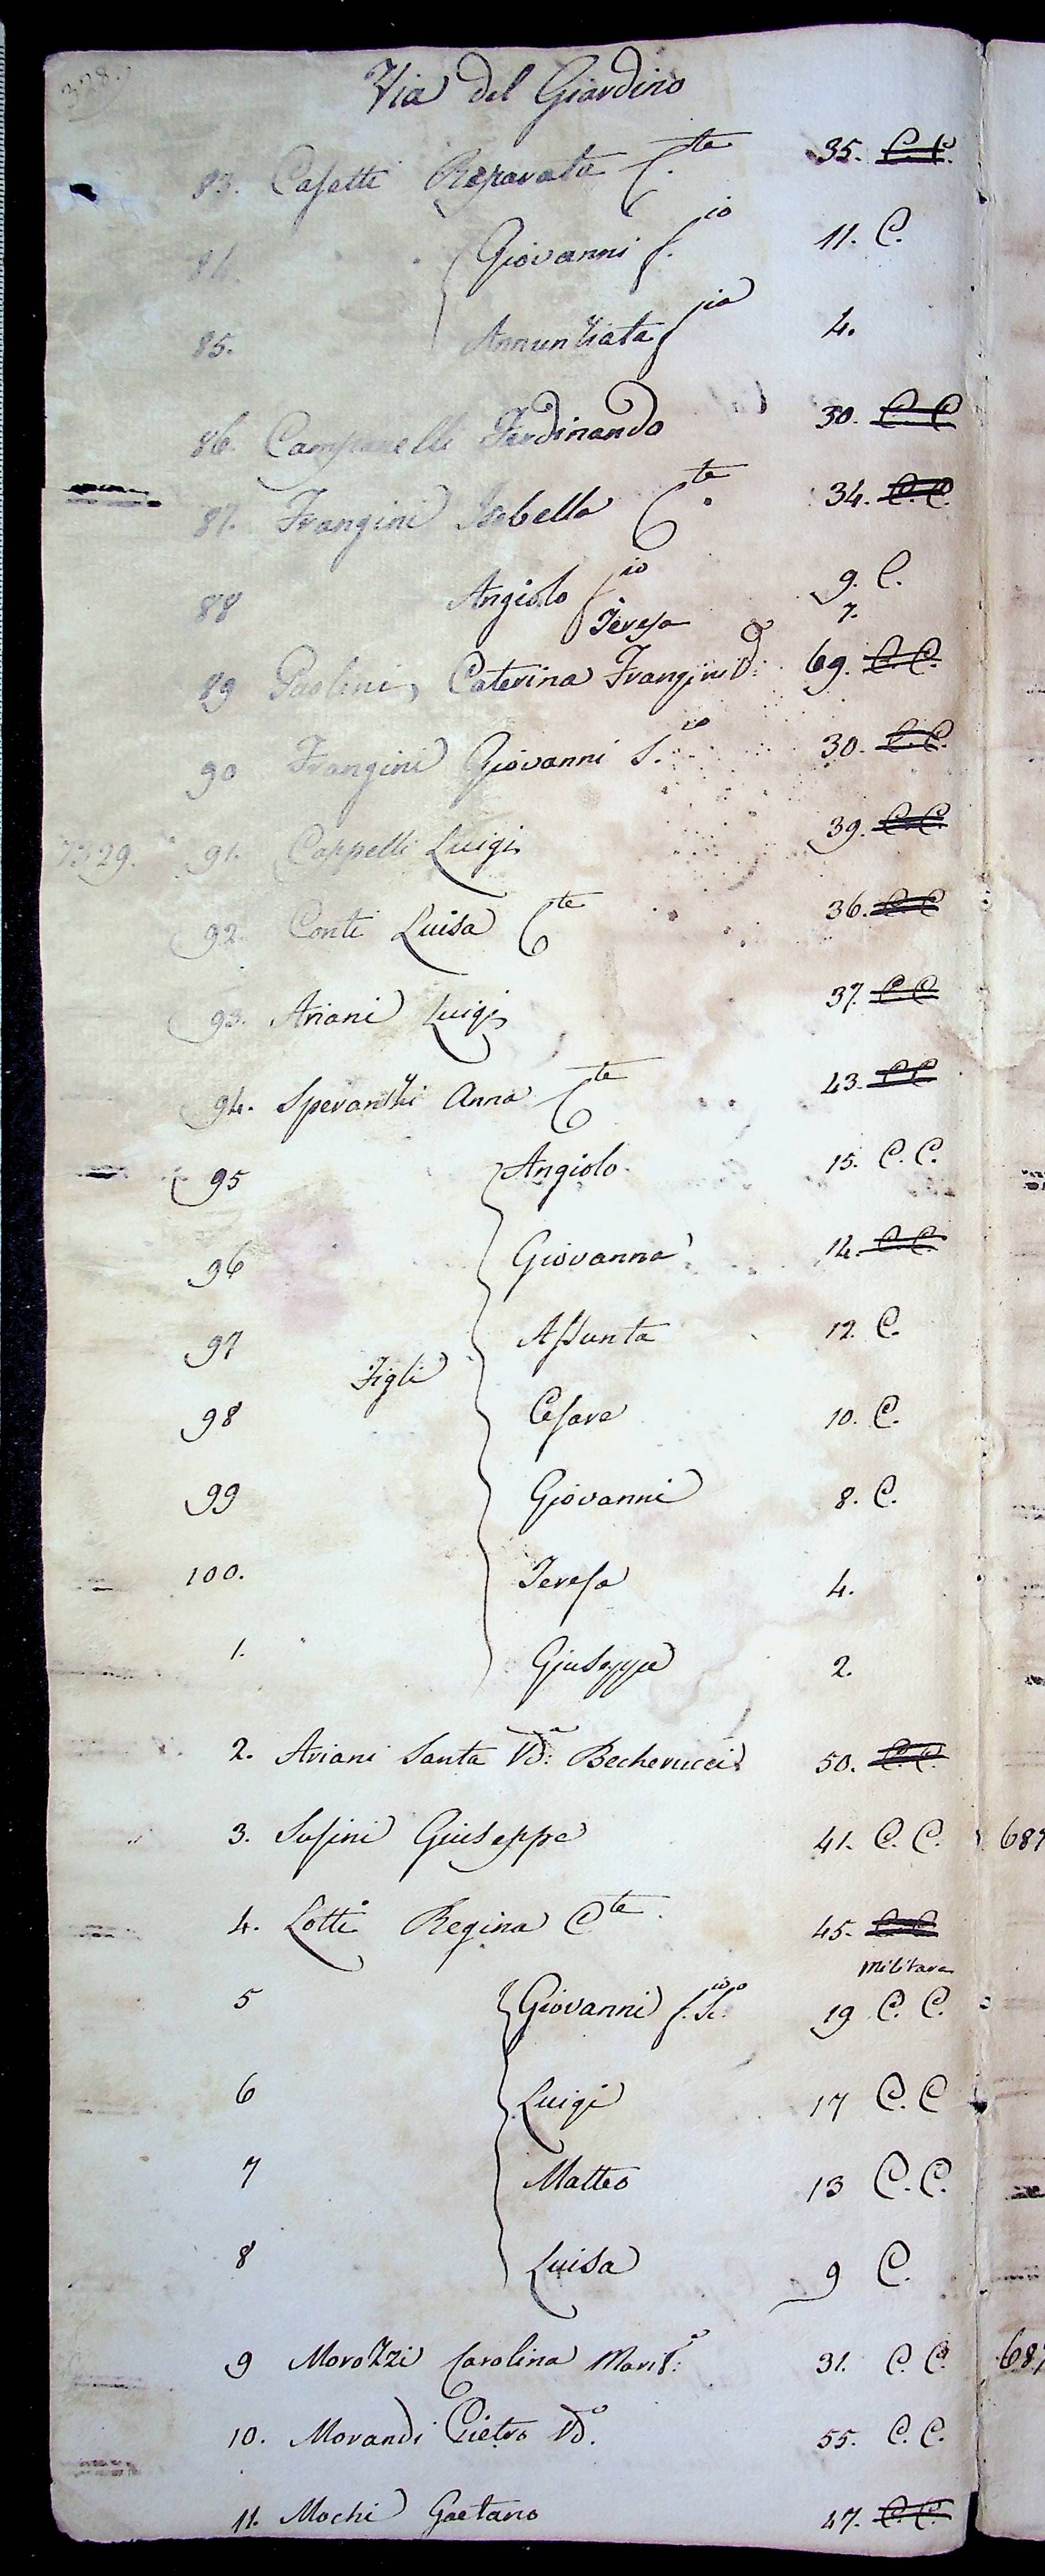 328.
Via del Giardino
83. Casetti Reparata C.te 35. C. C.
84. Giovanni f.io 11. C.
85. Annunziata f.ia 4.
86. Campanelli Ferdinando 30. C. C
87. Frangini Isabella C.te 34. C. C.
88 Angiolo f.io 9. C.
Teresa 7.
89 Paolini Caterina Frangini Vd.a 69. C. C.
90 Frangini Giovanni S.io 30. C. C.
7329. 91. Cappelli Luigi 39. C. C.
92. Conti Luisa C.te 36. C. C
93. Ariani Luigi 37. C. C
94. Speranzki Anna C.te 43. C C
95 Angiolo 15. C. C.
96 Giovanna 14. C. C.
97 Assunta 12. C.
Figli
98 Cesare 10. C.
99 Giovanni 8. C.
100. Teresa 4.
1. Giuseppe 2.
2. Ariani Santa Vd:a Becherucci 50. C. C.
3. Susini Giuseppe 41. C. C. 687
4. Lotti Regina Cte 45. C. C
Militare
5 Giovanni f.io S.o 19 C. C.
6 Luigi 17 C. C
7 Matteo 13 C. C.
8 Luisa 9 C.
9 Morozzi Carolina Marit:a 31. C. C. 687
10. Morandi Pietro Vd.o 55. C. C.
11. Mochi Gaetano 47. C. C.